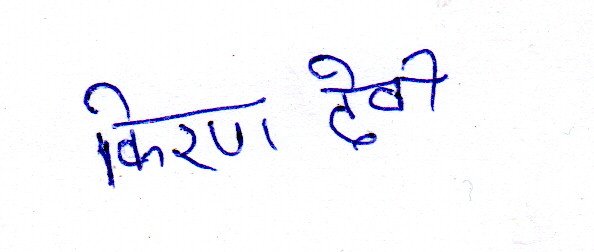 किरण देवी